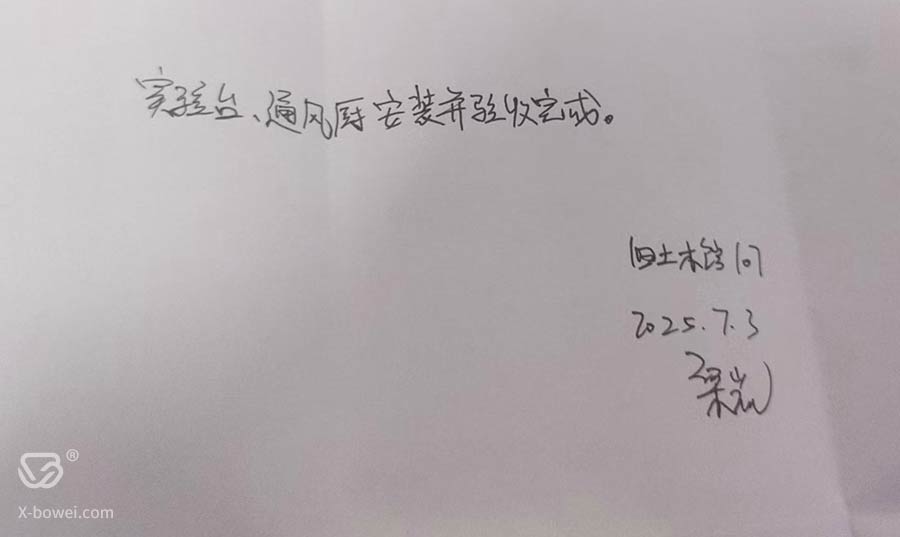 实验台、通风厨安装并验收完成。
旧土木馆107
2025.7.3
X-bowei.com